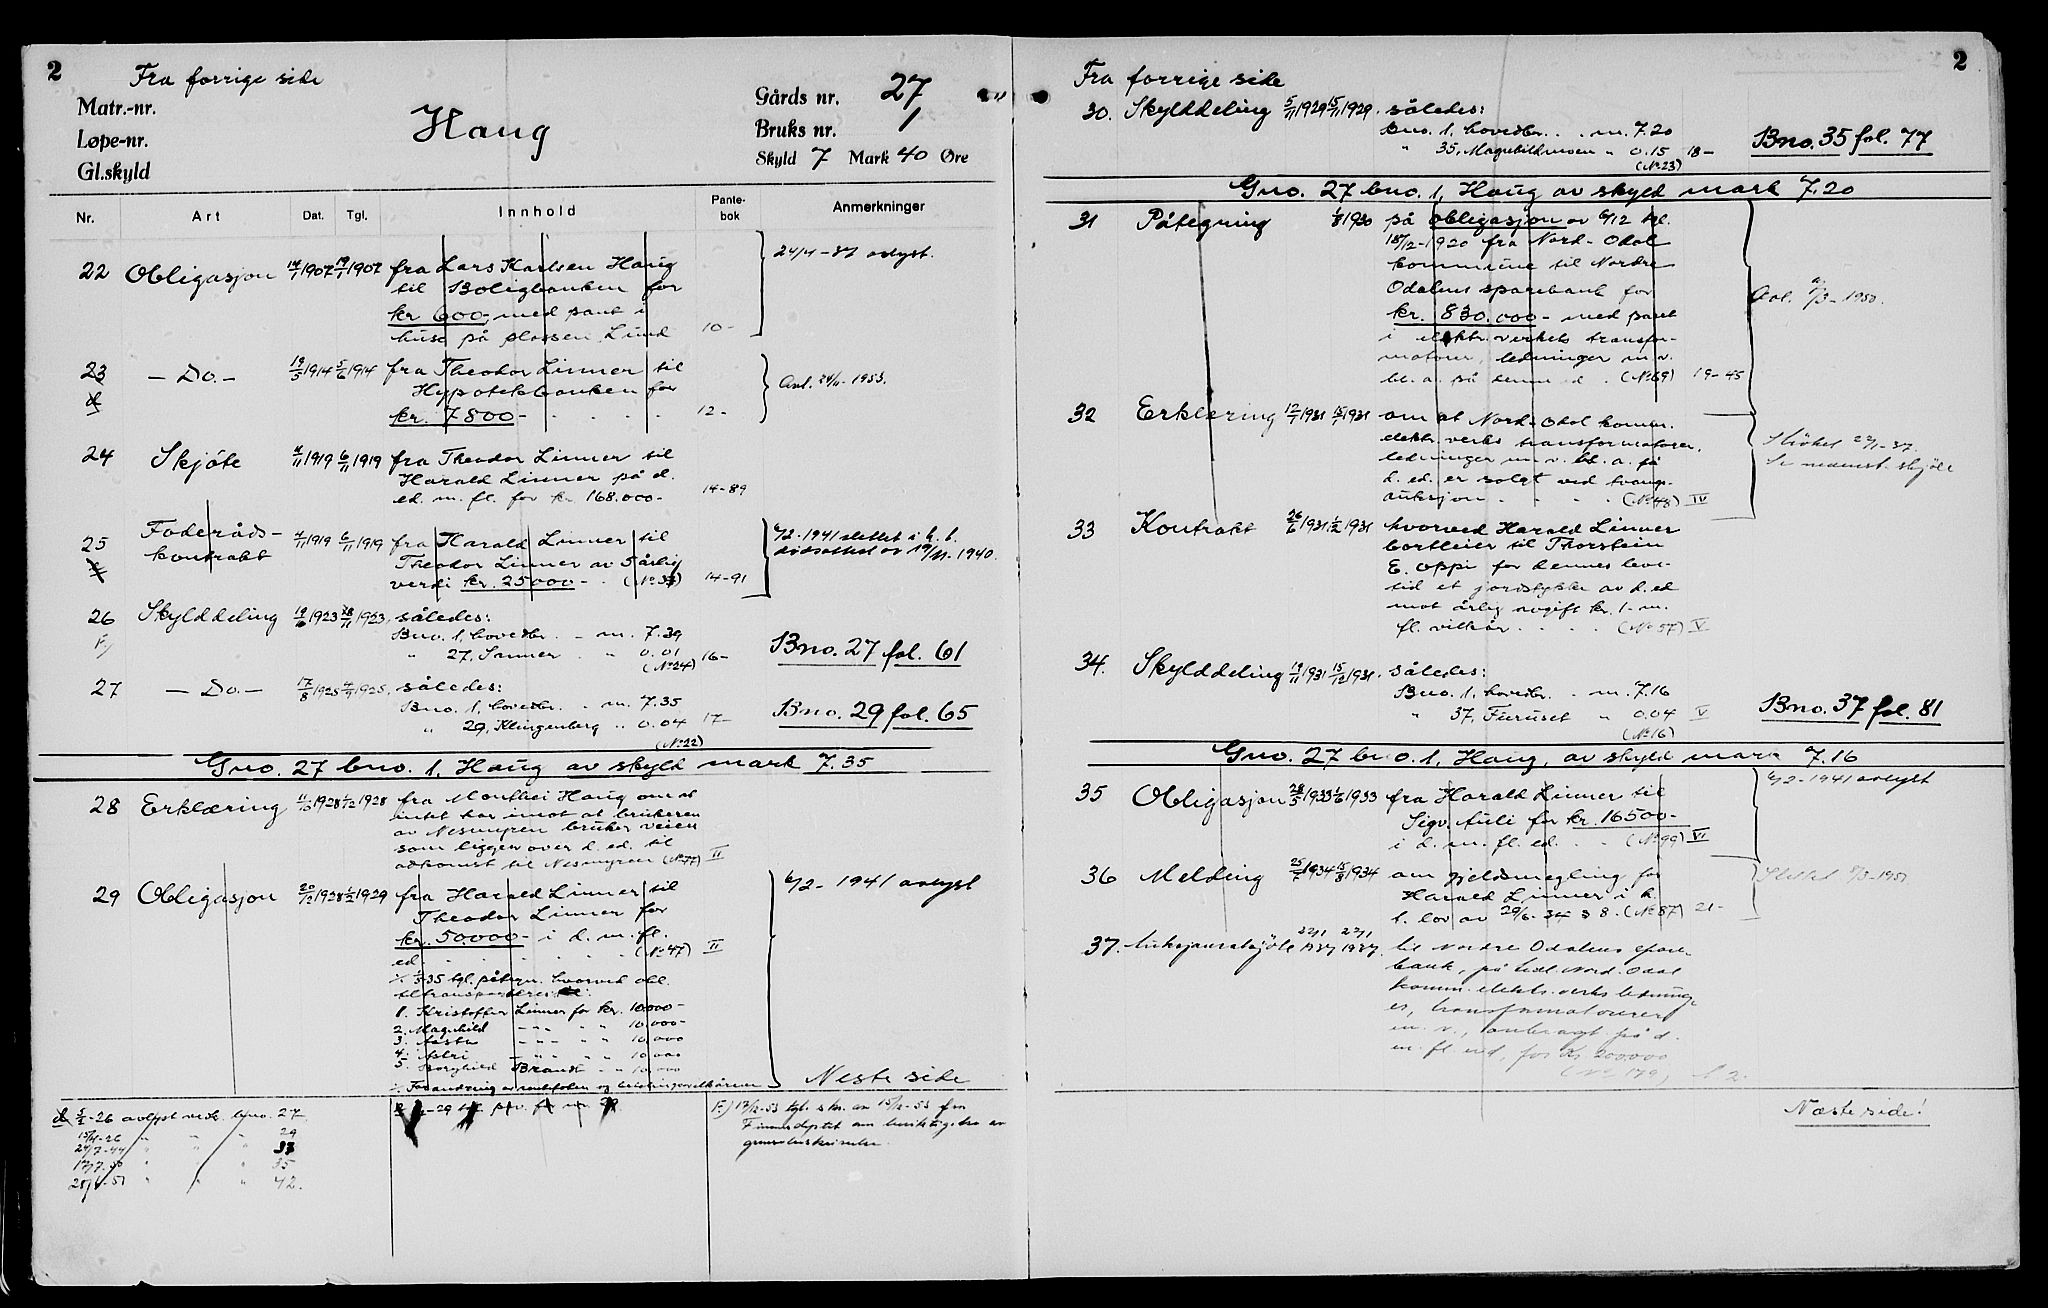 2
Fra forrige side
Matr.-nr.
Løpe-nr.
Gl.skyld
Haug
Gårds nr. 27
Bruks nr. 1
Skyld 7 Mark 40 Øre
Nr. Art Dat. Tgl. Innhold Pante-bok Anmerkninger
22 Obligasjon 1907 1907 fra Lars Karlsen Haug
til Boligbanken for
kr 600,- med pant i
huse på plassen Lund 10-
24/4-37 avlyst.
23 — Do. — 19/5 1914 5/6 1914 fra Theodor Linner til
Hypotekbanken for
kr. 7800- 12-
Avl. 1953.
24 Skjöte 4/11 1919 6/11 1919 fra Theodor Linner til
Harald Linner på d.
ed. m. fl. for kr. 168.000- 14-89
25 Föderåds-
kontrakt 4/11 1919 6/11 1919 fra Harald Linner til
Theodor Linner av 5 årlig
verdi kr. 25000- 14-91
6/2-1941 slettet i h. t.
dödsattest av 19/11-1940.
26 Skylddeling 1923 1923, således:
Bno. 1, hovedbr. - m. 7.39
" 27, Sanner " 0.01
(No 24) 16-
Bno. 27 fol. 61
27 — Do. — 17/8 1925 1925, således:
Bno. 1, hovedbr. " m. 7.35
" 29, Klingenberg " 0.04 17-
(No 22)
Bno. 29 fol. 65
Gno. 27 bno. 1, Haug av skyld mark 7.35
28 Erklæring 1928 1928 fra Monthei Haug om at
intet har imot at brukeren
av Nesmyren bruker veien
som ligger over d. ed. til
adkomst til Nesmyren (No 77) II
29 Obligasjon 1928 1929 fra Harald Linner til
Theodor Linner for
kr. 50.000- i d. m. fl.
ed. (No 47) II
6/2-1941 avlyst
35 tgl. påtegn. hvorved obl.
1. Kristoffer Linner for kr. 10.000-
2. Magnhild 10.000-
3. 10.000
4. 10.000
5. Borghild Brandt 10.000
Forandring av rentefoten og betalingsvilkårene
Neste side
-26 avlyst vedk. bno. 27
15/4-26 " " " 29
24/7-44 "
" 35
" 42.
F.) 17/12-53 tgl. skr. av 15/12-53 fra
Finansdeptet om
2
Fra forrige side
30. Skylddeling 5/11 1929 15/11 1929, således:
Bno. 1, hovedbr. . . m. 7.20
" 35, " 0.15 18-
(No 23)
Bno. 35 fol. 77
Gno. 27 bno. 1, Haug av skyld mark 7.20
31 Påtegning 1930 på obligasjon av 6/12 tgl.
18/12-1920 fra Nord-Odal
kommune til Nordre
Odalens sparebank for
kr. 830.000- med pant
i elektr. verkets transfor-
matorer, ledninger m. v.
bl. a. på denne ed. (No 69) 19-45
Avl. 1950.
32 Erklæring 12/1 1931 15/1 1931 om at Nord-Odal komm.
elektr. verks transformatorer,
ledninger m. v. bl. a. på
d. ed. er solgt ved tvangs-
auksjon (No 48) IV
Slöket 27/1-37.
Se nedenst. skjöte
33 Kontrakt 26/6 1931 1931 hvorved Harald Linner
bortleier til Thorstein
E. Oppi for dennes leve-
tid et jordstykke av d. ed
mot årlig avgift kr. 1- m.
fl. vilkår (No 57) V
34. Skylddeling 19/11 1931 15/12 1931, således:
Bno. 1, hovedbr. . m. 7.16
" 37, Furuset " 0.04 V
(No 16)
Bno. 37 fol. 81
Gno. 27 bno. 1, Haug, av skyld mark 7.16
35 Obligasjon 28/5 1933 1/6 1933 fra Harald Linner til
Sigv. Auli for kr. 16500-
i d. m. fl. ed. . . (No 99) VI
6/2-1941 avlyst
36 Melding 25/7 1934 15/8 1934 om gjeldsmegling for
Harald Linner i h.
t. lov av 29/6-34 § 8. (No 87) 21-
Slettet 1951
37. Auksjonsskjöte 27/1 1937 27/1 1937. til Nordre Odalens spare-
bank, på bl.a. Nord-Odal
komm. elektr. verks ledning-
er, transformatorer
m. v., anbragt på d.
m. fl. ed, for kr. 200.000
(No 179)
Næste side!